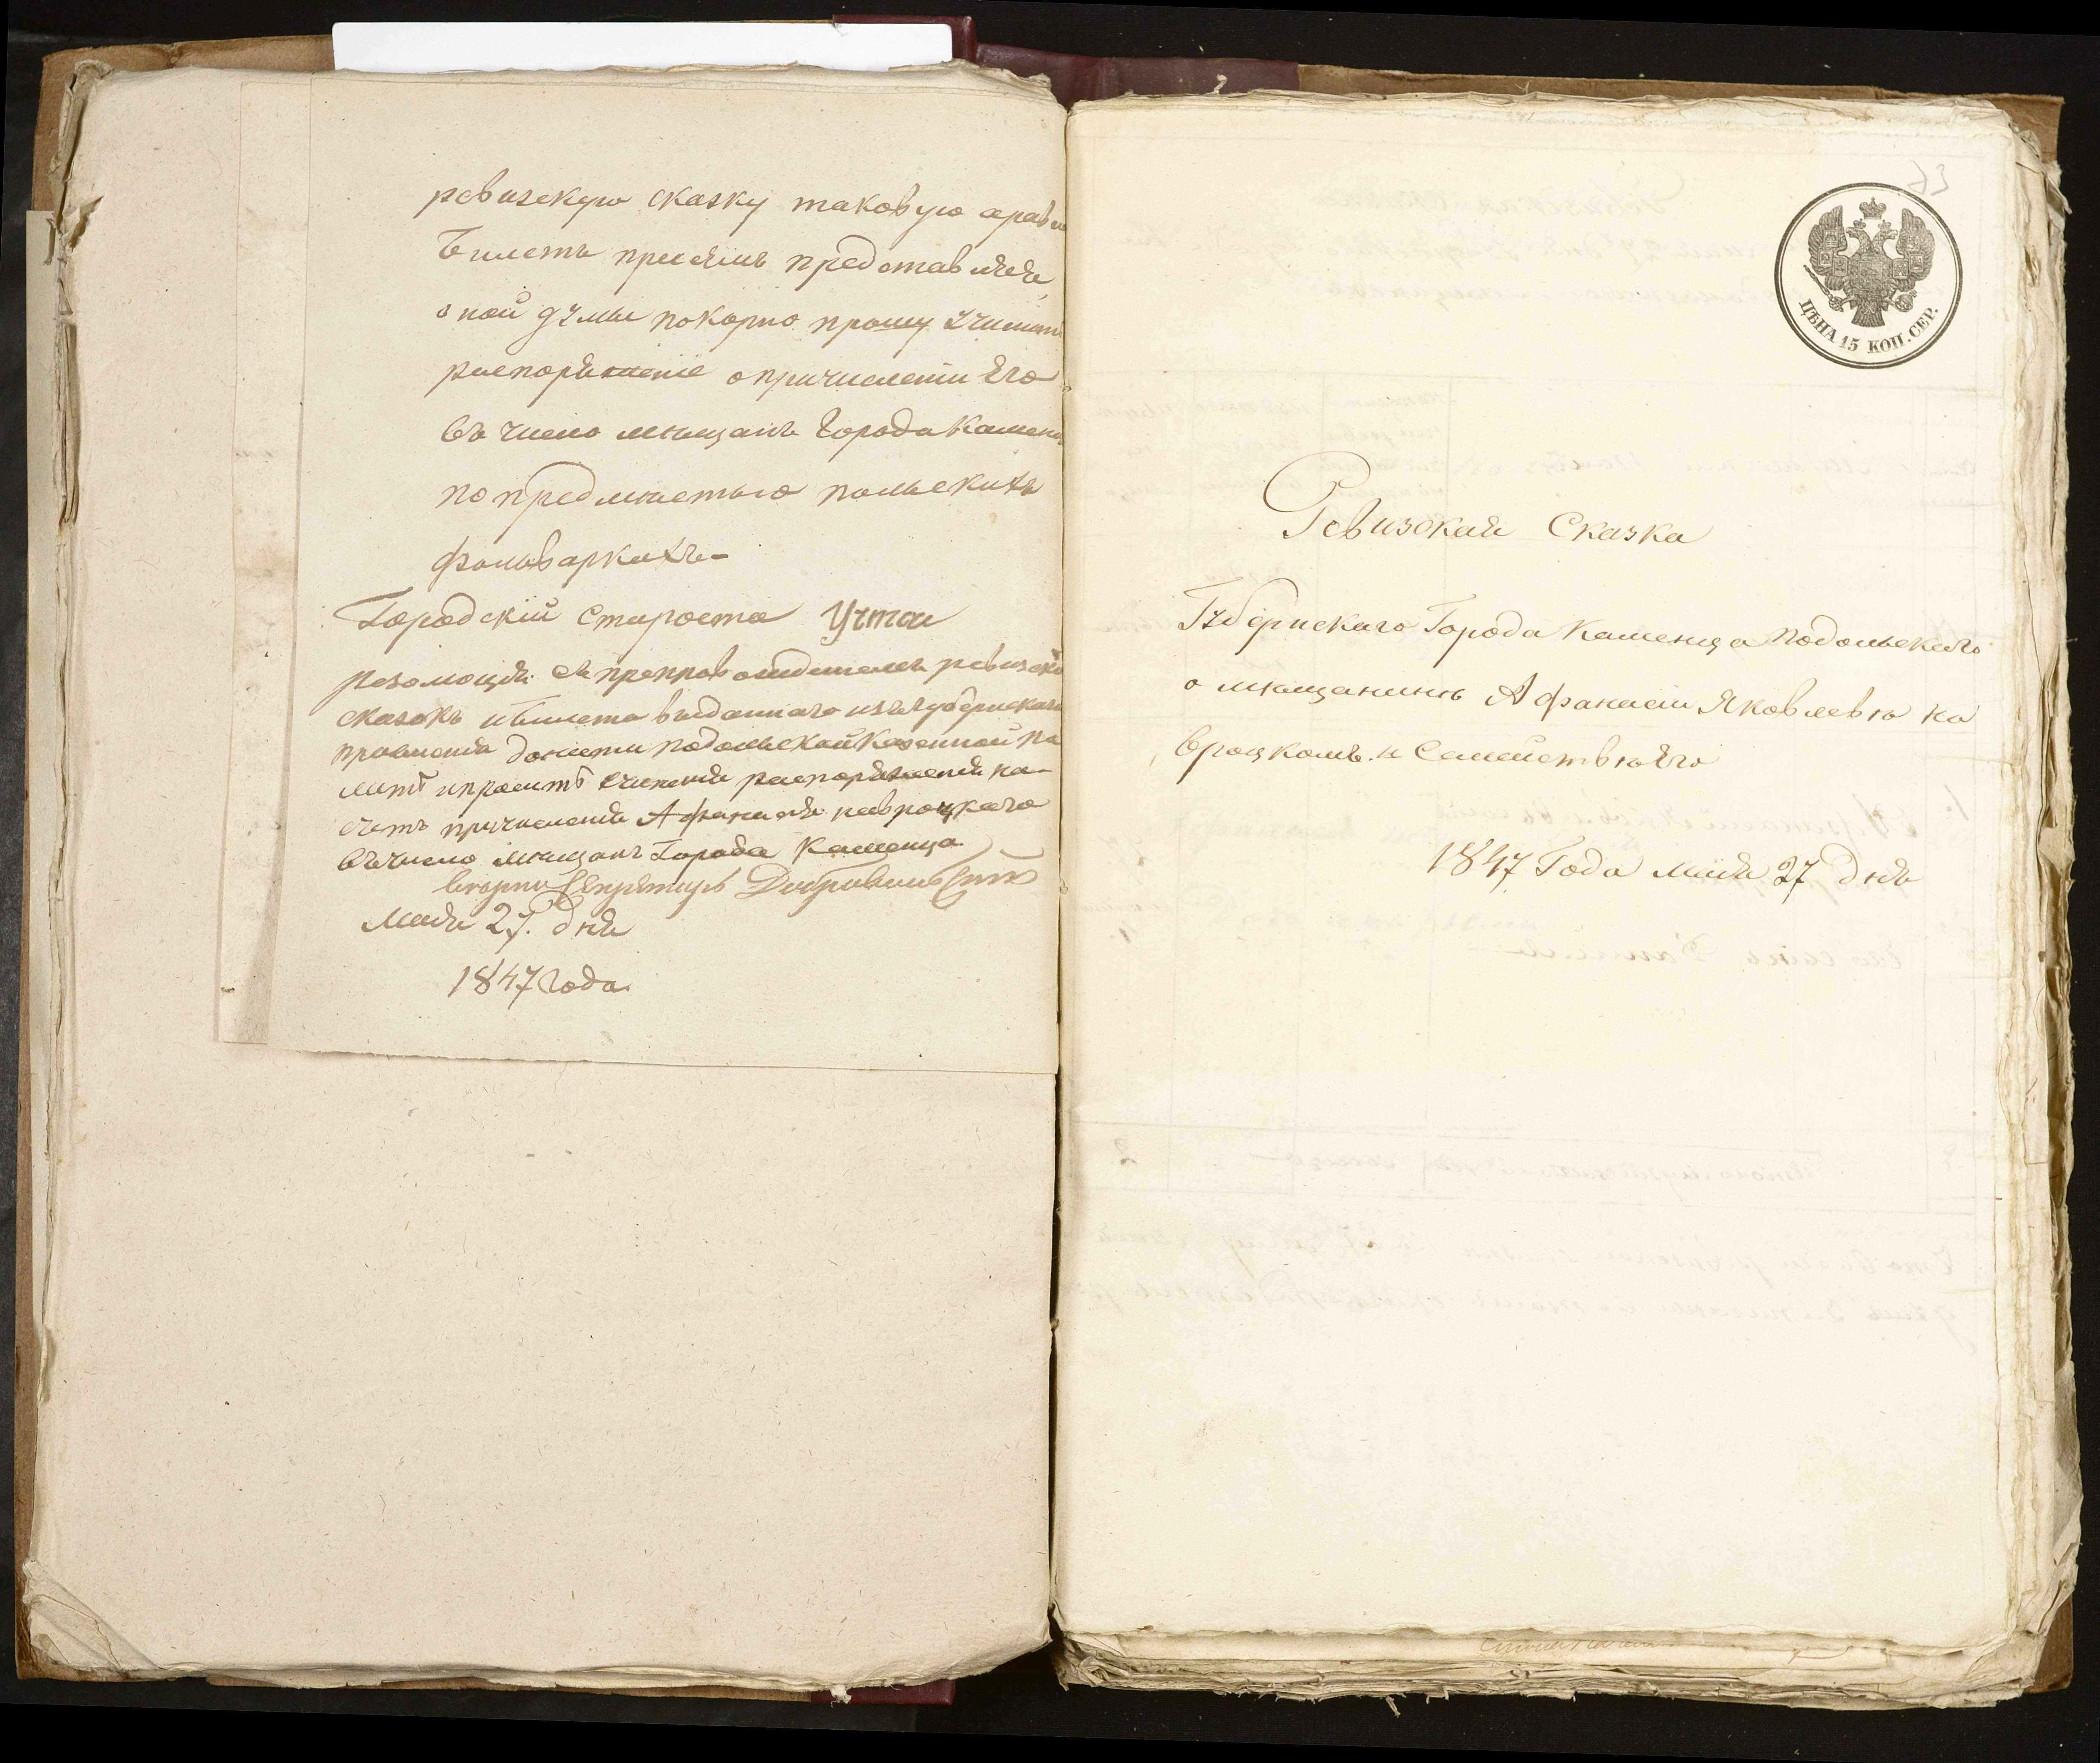 ревизскую сказку таковую
билетъ при семъ представляя
оной думы покорно прошу учинить
распоряжение о причислении его
въ число мещанъ города Камен
по предместью польскихъ
фольваркахъ
Городский Староста
резолюция: съ препровождениемъ ревизской
сказокъ и билета выданного изъ губернскаго
правления донести подольской казенной па
лате и просить распоряжения на
счетъ причисления Афанасия навроцкаго
въ число мещанъ Города Каменца
Секретарь
Мая 27. дня
1847 года
63
ЦѢНА 15 КОП. СЕР.
Ревизская Сказка
Губернскаго Города Каменца Подольскаго
о мещанине Афанасии Яковлеве на
вроцкомъ и Семействе его
1847 Года мая 27 дня